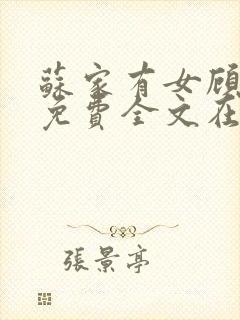 蘇家有女顾
免費全文在
張景亭